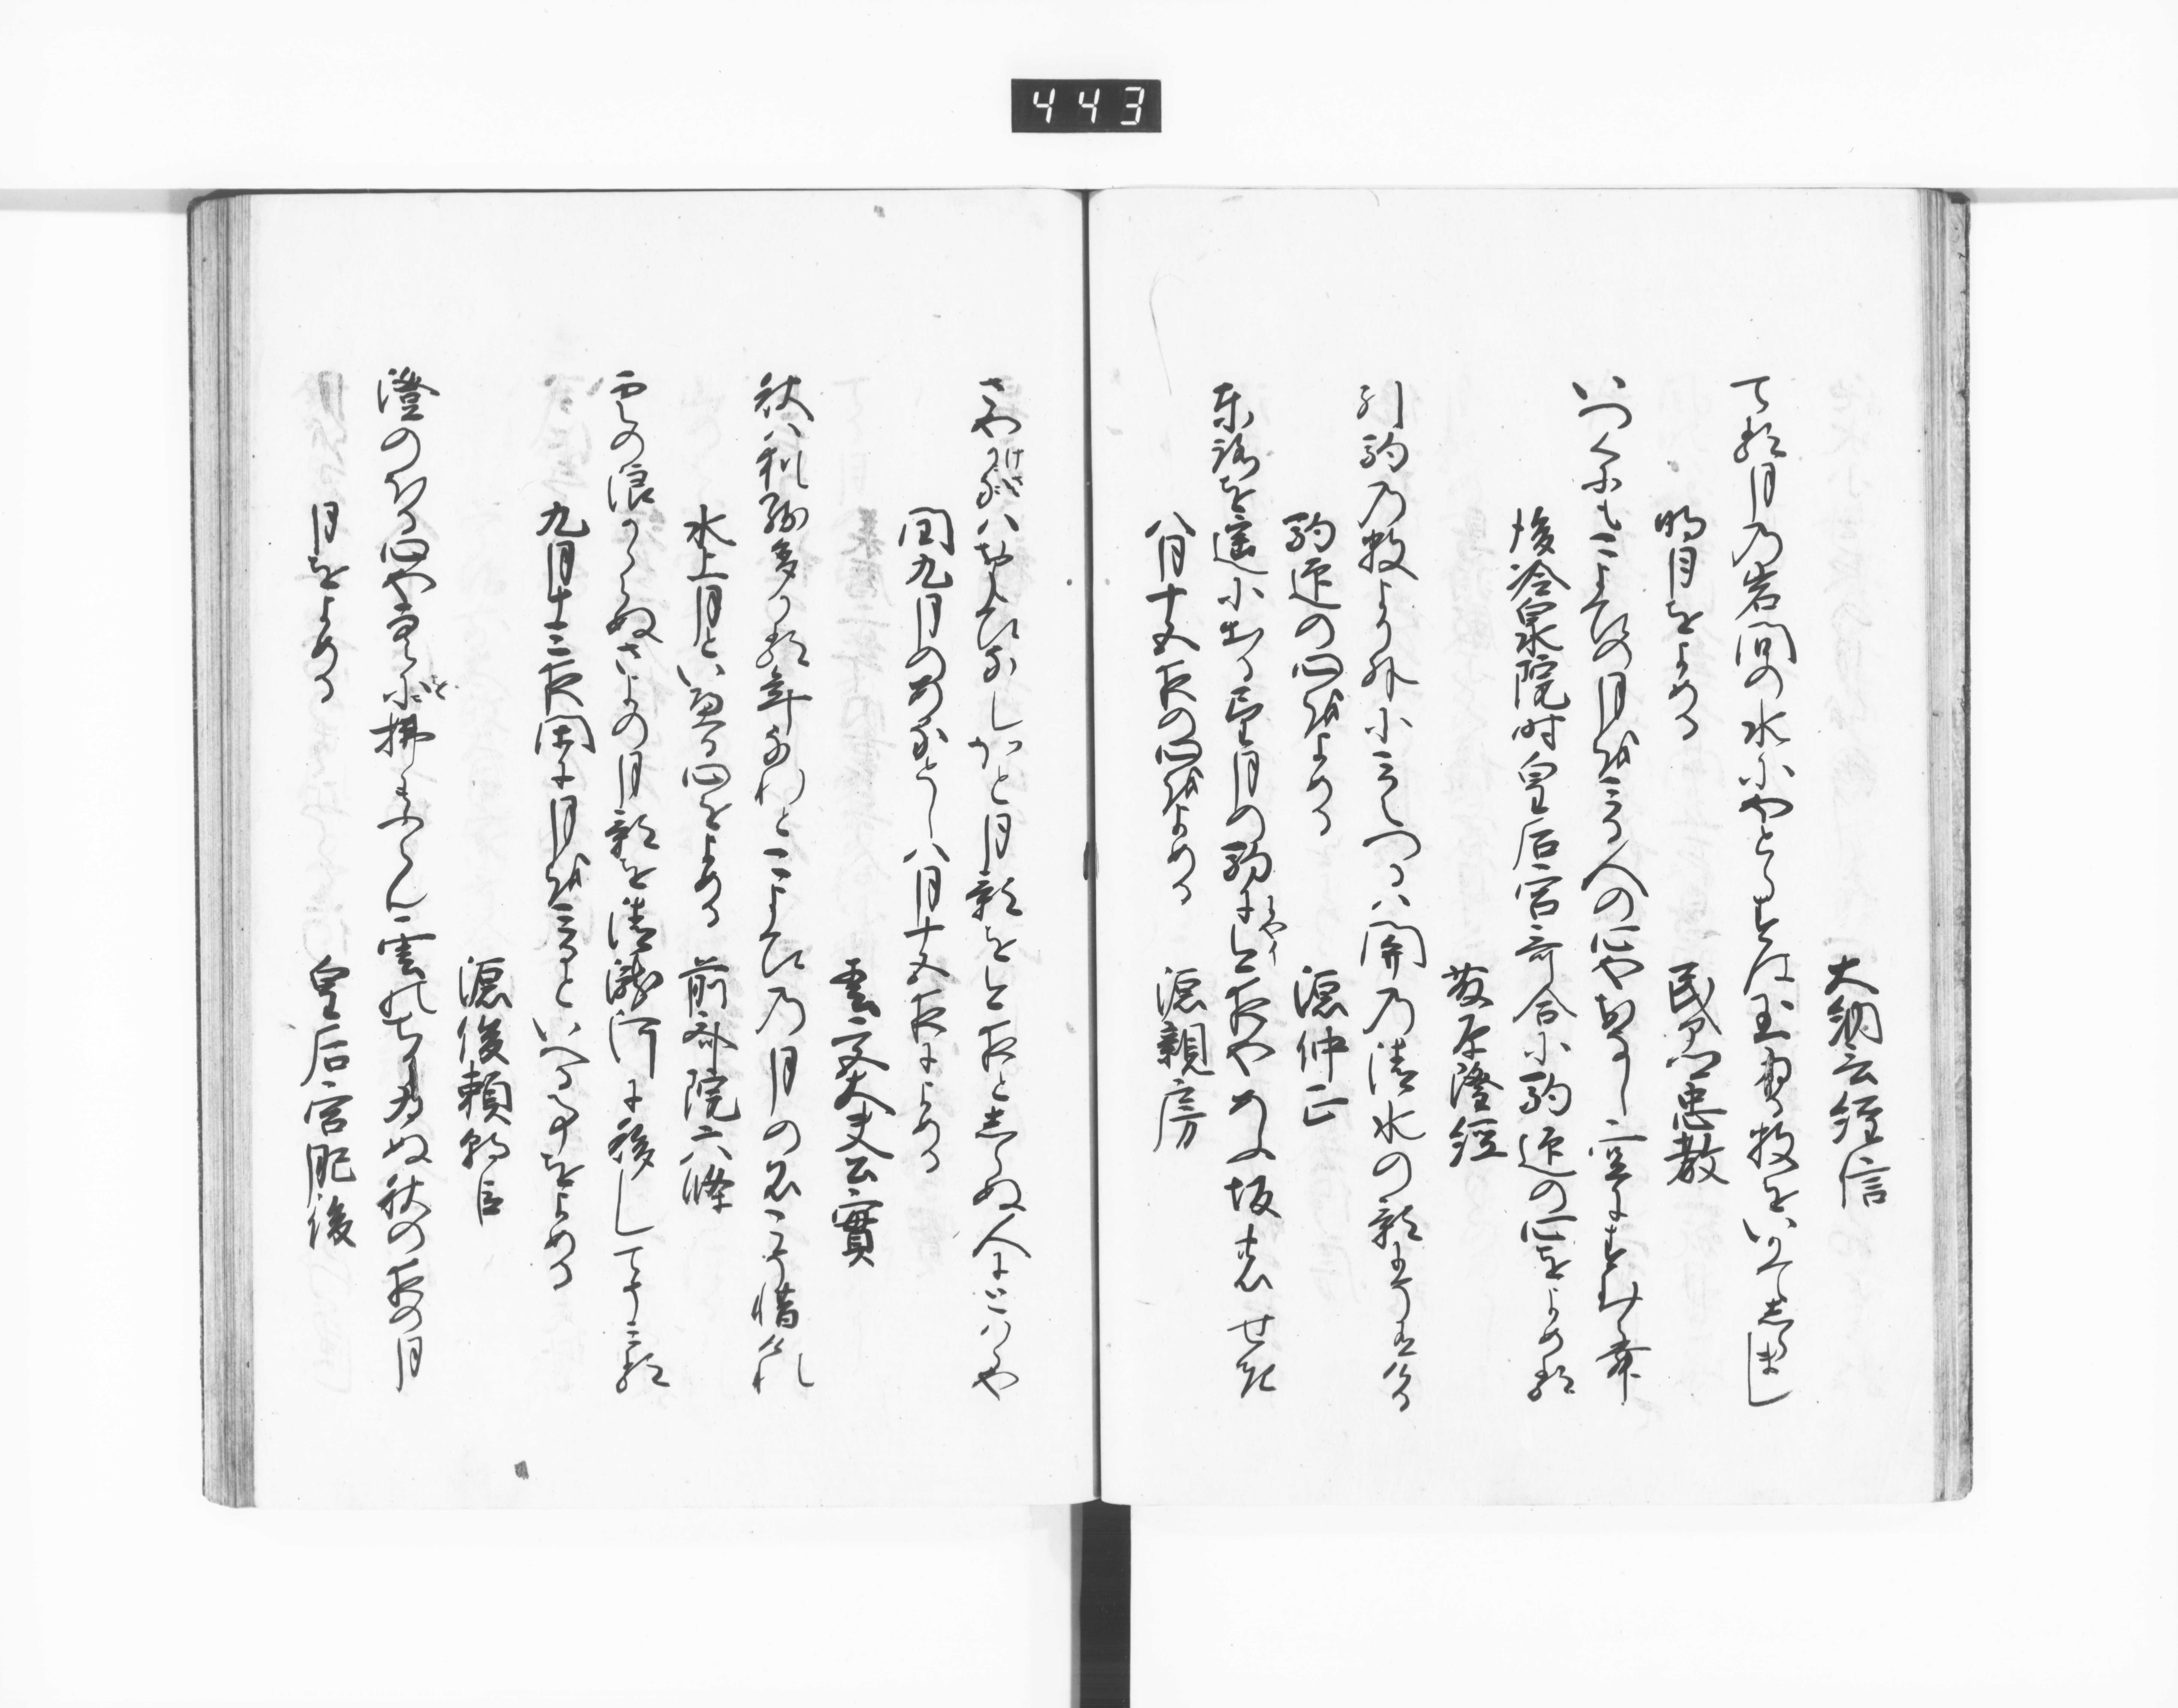 443
大納言経信
てる月の岩間の水にやとらすは玉ゐる数をいかてしらまし
明月をよめる
民部卿忠教
いつくにもこよひの月をみる人の心やおなし空にすむ覧
後冷泉院時皇后宮哥合に駒迎の心をよめる
藤原隆経
引駒の数より外にみえつるは関の清水の影にそ有ける
駒迎の心をよめる
源仲正
東路を遥に出る望月の駒にこよひやあふ坂のせき
八月十五夜の心をよめる
源親房
さやけさはおもひなしかと月影をこよひとしらぬ人にとはゝや
閏九月のあるとし八月十五夜によめる
春宮大夫公実
秋はまた過ぬる年なれとこよひの月の名こそ惜けれ
水上月といへる心をよめる
前斎院六條
雲の浪かゝらぬさよの月影を清瀧河に移してそみる
九月十三夜閑に月をみるといへる事をよめる
源俊頼朝臣
澄のほる心や空を拂ふらん雲の塵ゐぬ秋の夜の月
月をよめる
皇后宮肥後